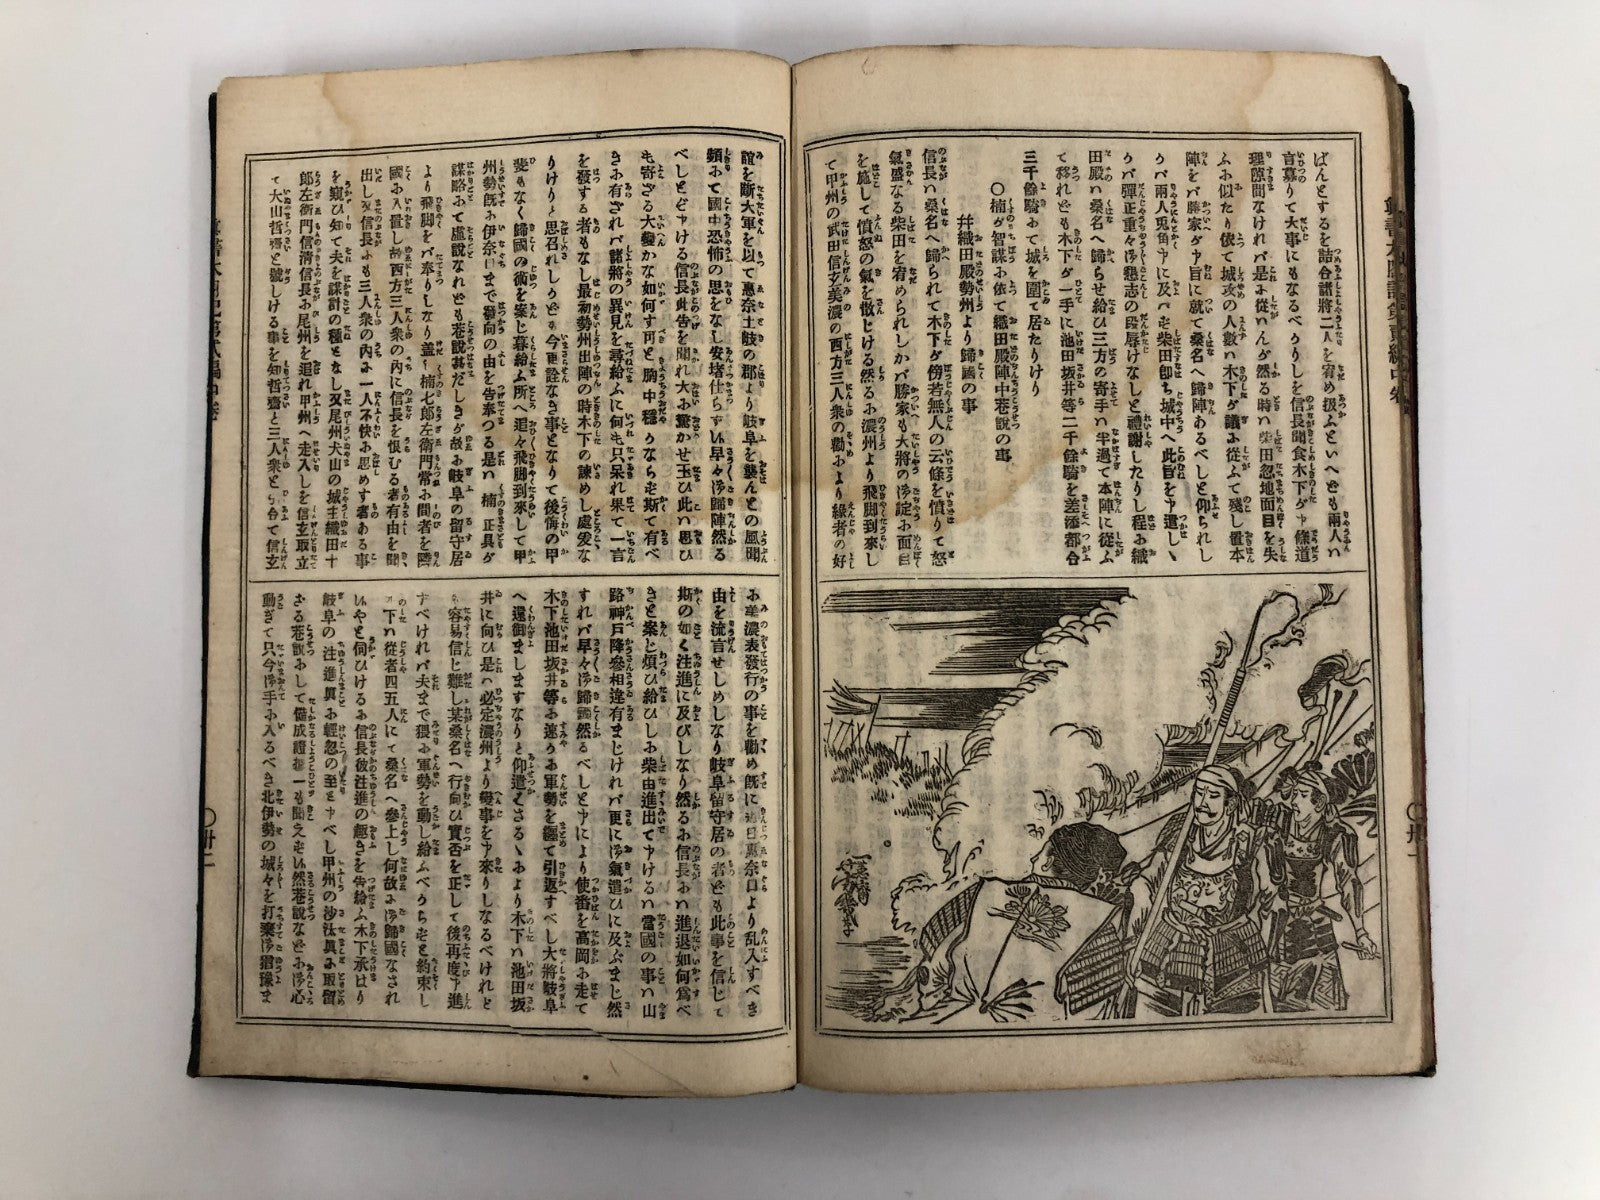 ばんとするを詰合諸將二人を宥め扱ふといへども兩人ハ
言募りて大事にもなるべかりしを信長聞食木下が申條道
理際間なけれバ是に從ハんが然る時ハ柴田忽地面目を失
ふに似たり依て城攻の人數ハ木下が議に從ふて殘し置本
陣をバ勝家が申旨に就て桑名へ歸陣あるべしと仰られし
かバ兩人兎角申に及バず柴田即ち城中へ此旨を申遣し
かバ彈正重々御懇志の段辱けなしと禮謝したりし程に織
田殿ハ桑名へ歸らせ給ひ三方の寄手ハ半過て本陣に從ふ
て移れども木下が一手に池田坂井等二千餘騎を差添都合
三千餘騎にて城を圍て居たりけり
○楠が智謀に依て織田殿陣中巷説の事
并織田殿勢州より歸國の事
信長ハ桑名へ歸られて木下が傍若無人の云條を憤りて怒
氣盛なる柴田を宥められしかバ勝家も大將の御諚に面目
を施して憤怒の氣を散じける然るに濃州より飛脚到來し
て甲州の武田信玄美濃の西方三人衆の勸により緣者の好
誼を斷大軍を以て惠奈土岐の郡より岐阜を襲んとの風聞
頻にて國中恐怖の思をなし安堵仕らず早々御歸陣然る
べしとぞ申ける信長此告を聞れ大に驚かせ玉ひ此ハ思ひ
も寄ざる大變かな如何す可と胸中穩かならず斯て有べ
きに有ざれバ諸將の異見を尋給ふに何も只呆れ果て一言
を發する者もなし最初勢州出陣の時木下の諫めし處愛な
りけりと思召れしかども今更詮なき事となりて後悔の甲
斐もなく歸國の術を案じ暮給ふ所へ追々飛脚到來して甲
州勢既に伊奈口まで發向の由を告奉つる是ハ楠正具が
謀略にて虛説なれども巷説甚だしきが故に岐阜の留守居
より飛脚をバ奉りしなり蓋し楠七郎左衛門常に間者を隣
國に入置し故西方三人衆の内に信長を恨むる者有由を聞
出し又信長にも三人衆の内に一人不快に思めす者ある事
を窺ひ知て夫を謀計の種となし又尾州犬山の城主織田十
郎左衛門信清信長に尾州を追れ甲州へ走入しを信玄取立
て犬山哲齋と號しける事を知哲齋と三人衆と心合て信玄
に美濃表發行の事を勸め既に近日惠奈口より乱入すべき
由を流言せしめしなり岐阜留守居の者ども此事を信じて
斯の如く注進に及びしなり然るに信長にハ進退如何爲べ
きと案じ煩ひ給ひしに柴田進出て申けるハ當國の事ハ山
路神戸降參相違有まじけれバ更に御氣遣ひに及ぶまじ然
すれバ早々御歸國然るべしと申により使番を高岡に走て
木下池田坂井等に速かに軍勢を纏て引返すべし大將岐阜
へ還御ましますなりと仰遣ハさるゝにより木下ハ池田坂
井に向ひ是ハ必定濃州より變事を申來りしなるべけれど
も容易信じ難し某桑名へ行向ひ實否を正して後再度申進
すべけれバ夫まで猥に軍勢を動し給ふべからずと約束し
木下ハ從者四五人にて桑名へ參上し何故に御歸國なされ
しやと伺ひけるに信長彼注進の趣きを告給ふ木下承はり
岐阜の注進興に輕忽の至と申べし甲州の沙汰興に取留
ざる巷説にして慥成證據一も聞えず然巷説などに御心
動ぎて只今御手に入るべき北伊勢の城々を打棄御猶豫ま
○卅一
○卅二